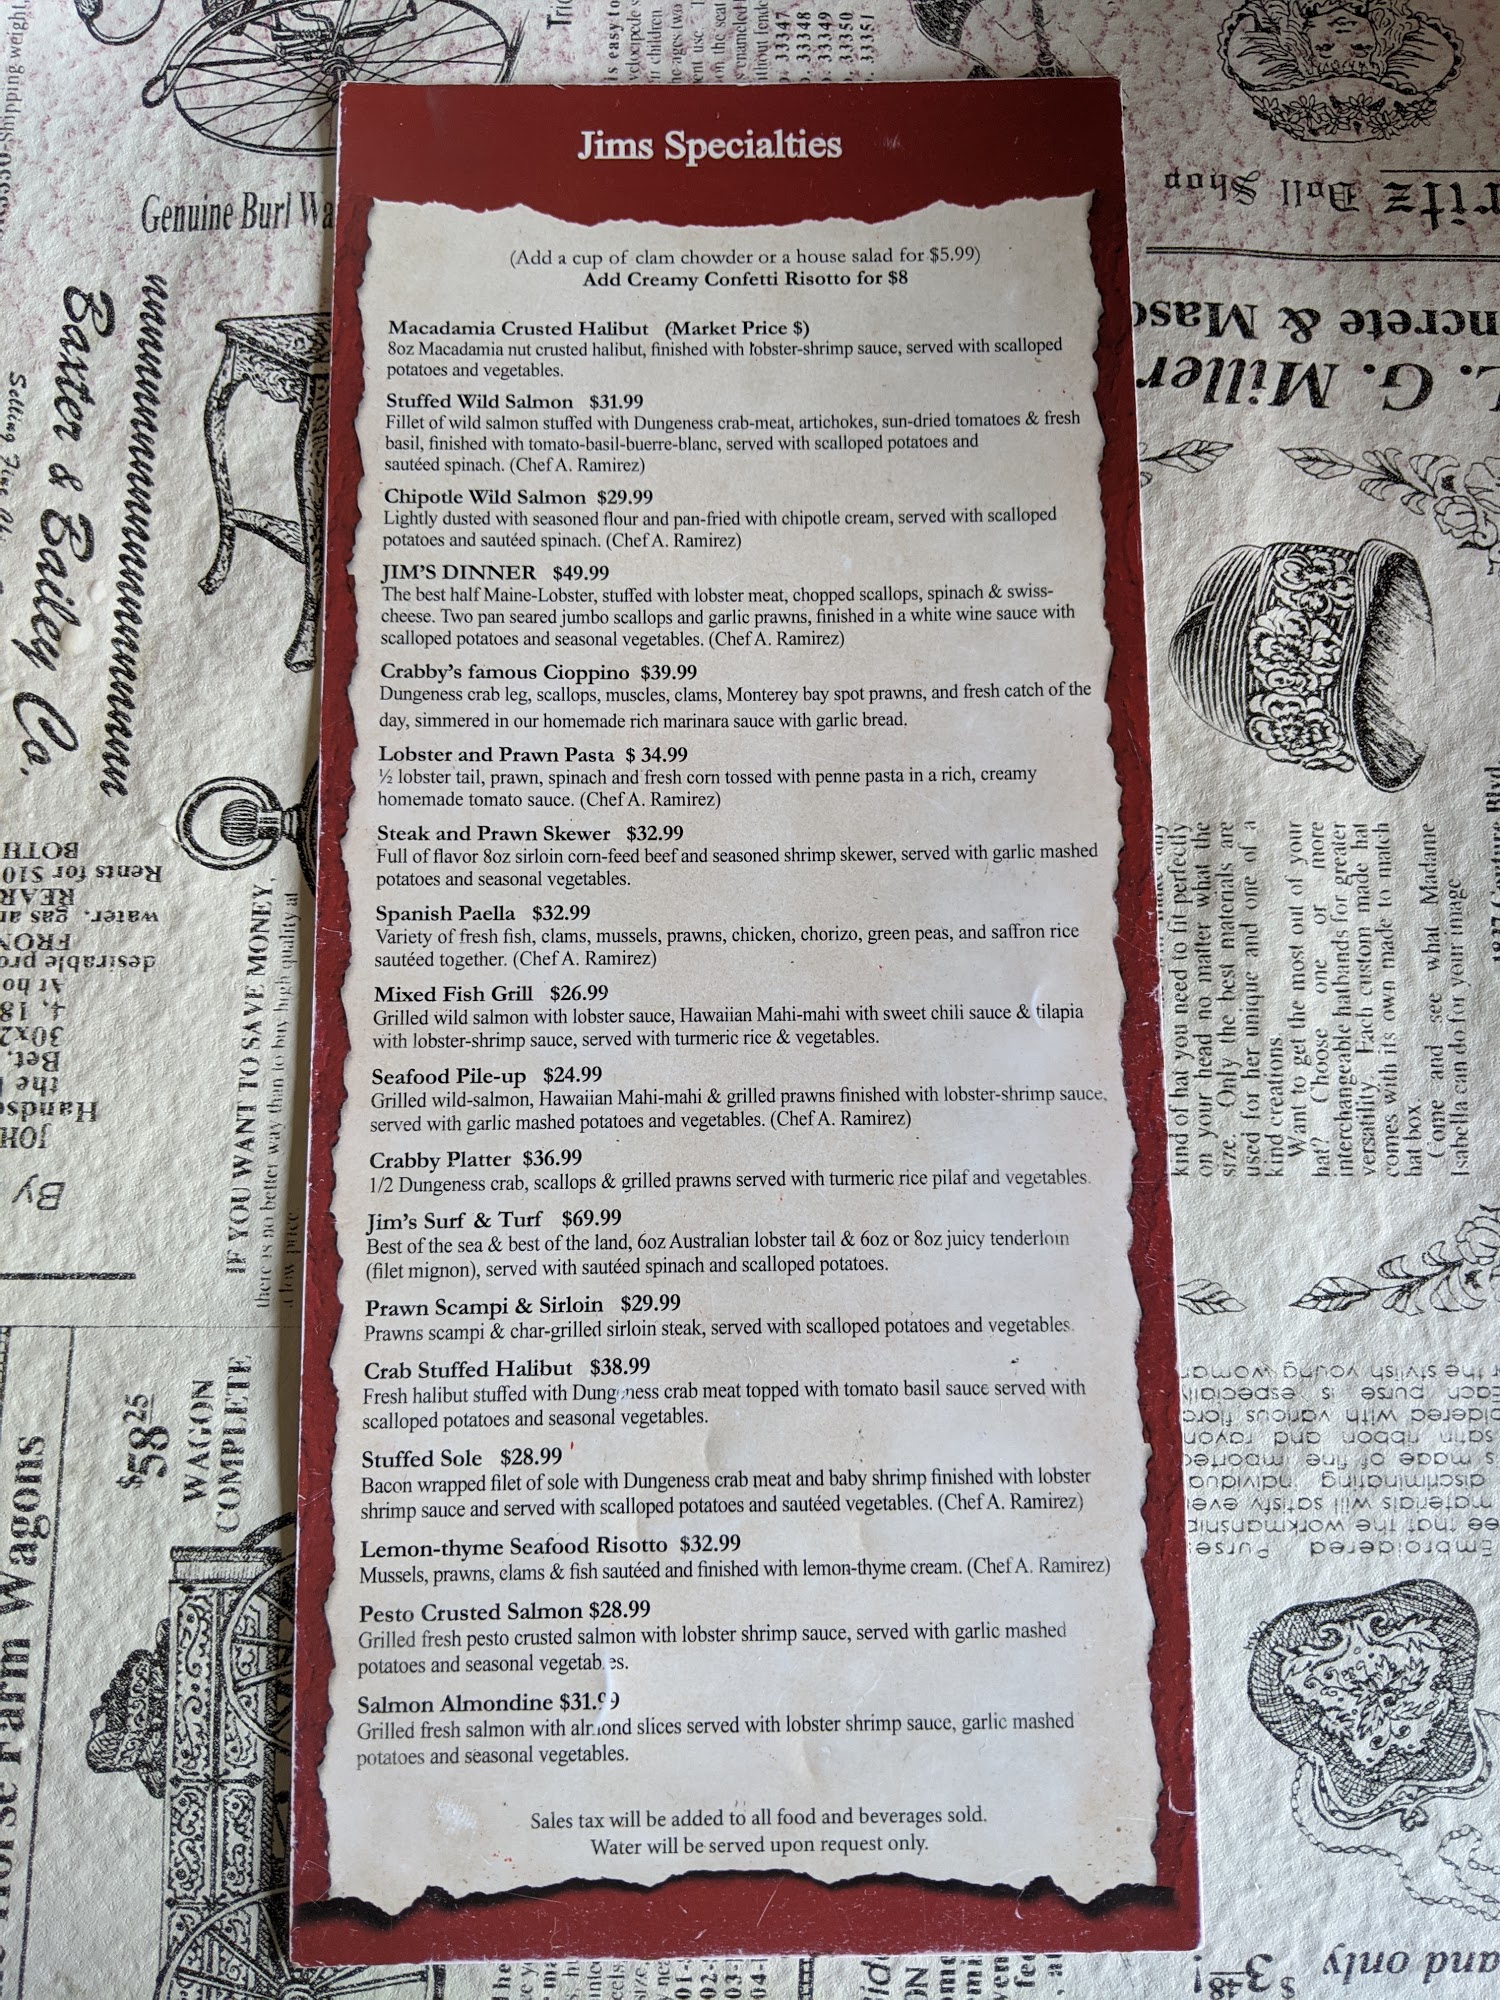 Jims Specialties
(Add a cup of clam chowder or a house salad for $5.99)
Add Creamy Confetti Risotto for $8
Macadamia Crusted Halibut (Market Price $)
8oz Macadamia nut crusted halibut, finished with lobster-shrimp sauce, served with scalloped
potatoes and vegetables.
Stuffed Wild Salmon $31.99
Fillet of wild salmon stuffed with Dungeness crab-meat, artichokes, sun-dried tomatoes & fresh
basil, finished with tomato-basil-buerre-blanc, served with scalloped potatoes and
sautéed spinach. (Chef A. Ramirez)
Chipotle Wild Salmon $29.99
Lightly dusted with seasoned flour and pan-fried with chipotle cream, served with scalloped
potatoes and sautéed spinach. (Chef A. Ramirez)
JIM'S DINNER $49.99
The best half Maine-Lobster, stuffed with lobster meat, chopped scallops, spinach & swiss-
cheese. Two pan seared jumbo scallops and garlic prawns, finished in a white wine sauce with
scalloped potatoes and seasonal vegetables. (Chef A. Ramirez)
Crabby's famous Cioppino $39.99
Dungeness crab leg, scallops, muscles, clams, Monterey bay spot prawns, and fresh catch of the
day, simmered in our homemade rich marinara sauce with garlic bread.
Lobster and Prawn Pasta $ 34.99
½ lobster tail, prawn, spinach and fresh corn tossed with penne pasta in a rich, creamy
homemade tomato sauce. (Chef A. Ramirez)
Steak and Prawn Skewer $32.99
Full of flavor 8oz sirloin corn-feed beef and seasoned shrimp skewer, served with garlic mashed
potatoes and seasonal vegetables.
Spanish Paella $32.99
Variety of fresh fish, clams, mussels, prawns, chicken, chorizo, green peas, and saffron rice
sautéed together. (Chef A. Ramirez)
Mixed Fish Grill $26.99
Grilled wild salmon with lobster sauce, Hawaiian Mahi-mahi with sweet chili sauce & tilapia
with lobster-shrimp sauce, served with turmeric rice & vegetables.
Seafood Pile-up $24.99
Grilled wild-salmon, Hawaiian Mahi-mahi & grilled prawns finished with lobster-shrimp sauce,
served with garlic mashed potatoes and vegetables. (Chef A. Ramirez)
Crabby Platter $36.99
1/2 Dungeness crab, scallops & grilled prawns served with turmeric rice pilaf and vegetables.
Jim's Surf & Turf $69.99
Best of the sea & best of the land, 6oz Australian lobster tail & 6oz or 8oz juicy tenderloin
(filet mignon), served with sautéed spinach and scalloped potatoes.
Prawn Scampi & Sirloin $29.99
Prawns scampi & char-grilled sirloin steak, served with scalloped potatoes and vegetables.
Crab Stuffed Halibut $38.99
Fresh halibut stuffed with Dungeness crab meat topped with tomato basil sauce served with
scalloped potatoes and seasonal vegetables.
Stuffed Sole $28.99
Bacon wrapped filet of sole with Dungeness crab meat and baby shrimp finished with lobster
shrimp sauce and served with scalloped potatoes and sautéed vegetables. (Chef A. Ramirez)
Lemon-thyme Seafood Risotto $32.99
Mussels, prawns, clams & fish sautéed and finished with lemon-thyme cream. (Chef A. Ramirez)
Pesto Crusted Salmon $28.99
Grilled fresh pesto crusted salmon with lobster shrimp sauce, served with garlic mashed
potatoes and seasonal vegetables.
Salmon Almondine $31.99
Grilled fresh salmon with almond slices served with lobster shrimp sauce, garlic mashed
potatoes and seasonal vegetables.
Sales tax will be added to all food and beverages sold.
Water will be served upon request only.
Genuine Burl
Baxter & Bailey Co.
IF YOU WANT TO SAVE MONEY,
there is no better way than to buy high quality at
a low price
$58 25
WAGON
COMPLETE
Farm Wagons
Doll Shop
G. Miller
kind of hat you need to fit perfectly
on your head no matter what the
size. Only the best materials are
used for her unique and one of a
kind creations.
Want to get the most out of your
hat? Choose one or more
interchangeable hatbands for greater
versatility. Each custom made hat
comes with its own made to match
hat box.
Come and see what Madame
Isabella can do for your image
and only